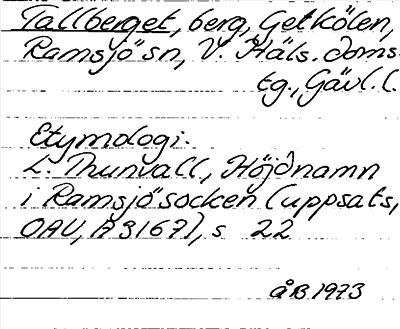 Tallberget, berg, Getkölen,
Ramsjö sn, V. Häls. doms.
tg., Gävl. l.
Etymologi.
L. Thunvall, Höjdnamn
i Ramsjö socken (uppsats,
OAU, A 3167), s 22
ÅB 1973